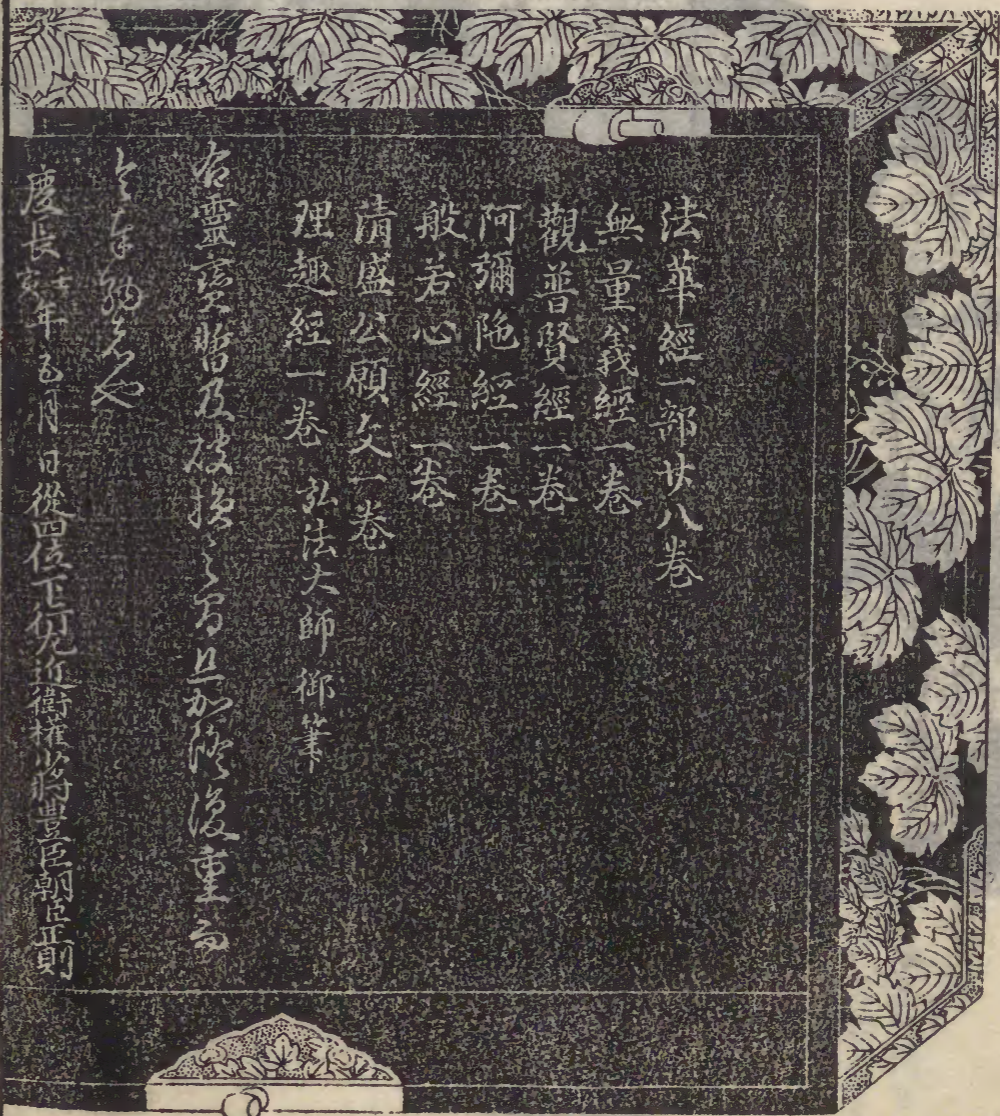 法華經一部廿八巻
無量義經一巻
觀普賢經一巻
阿彌陁經一巻
般若心經一巻
清盛公願文一巻
理趣經一巻 弘法大師御筆
右靈寳暫及破損之間且加修復重而
令奉納者也
慶長壬寅年五月日從四位下行左近衛権少将豊臣朝臣正則